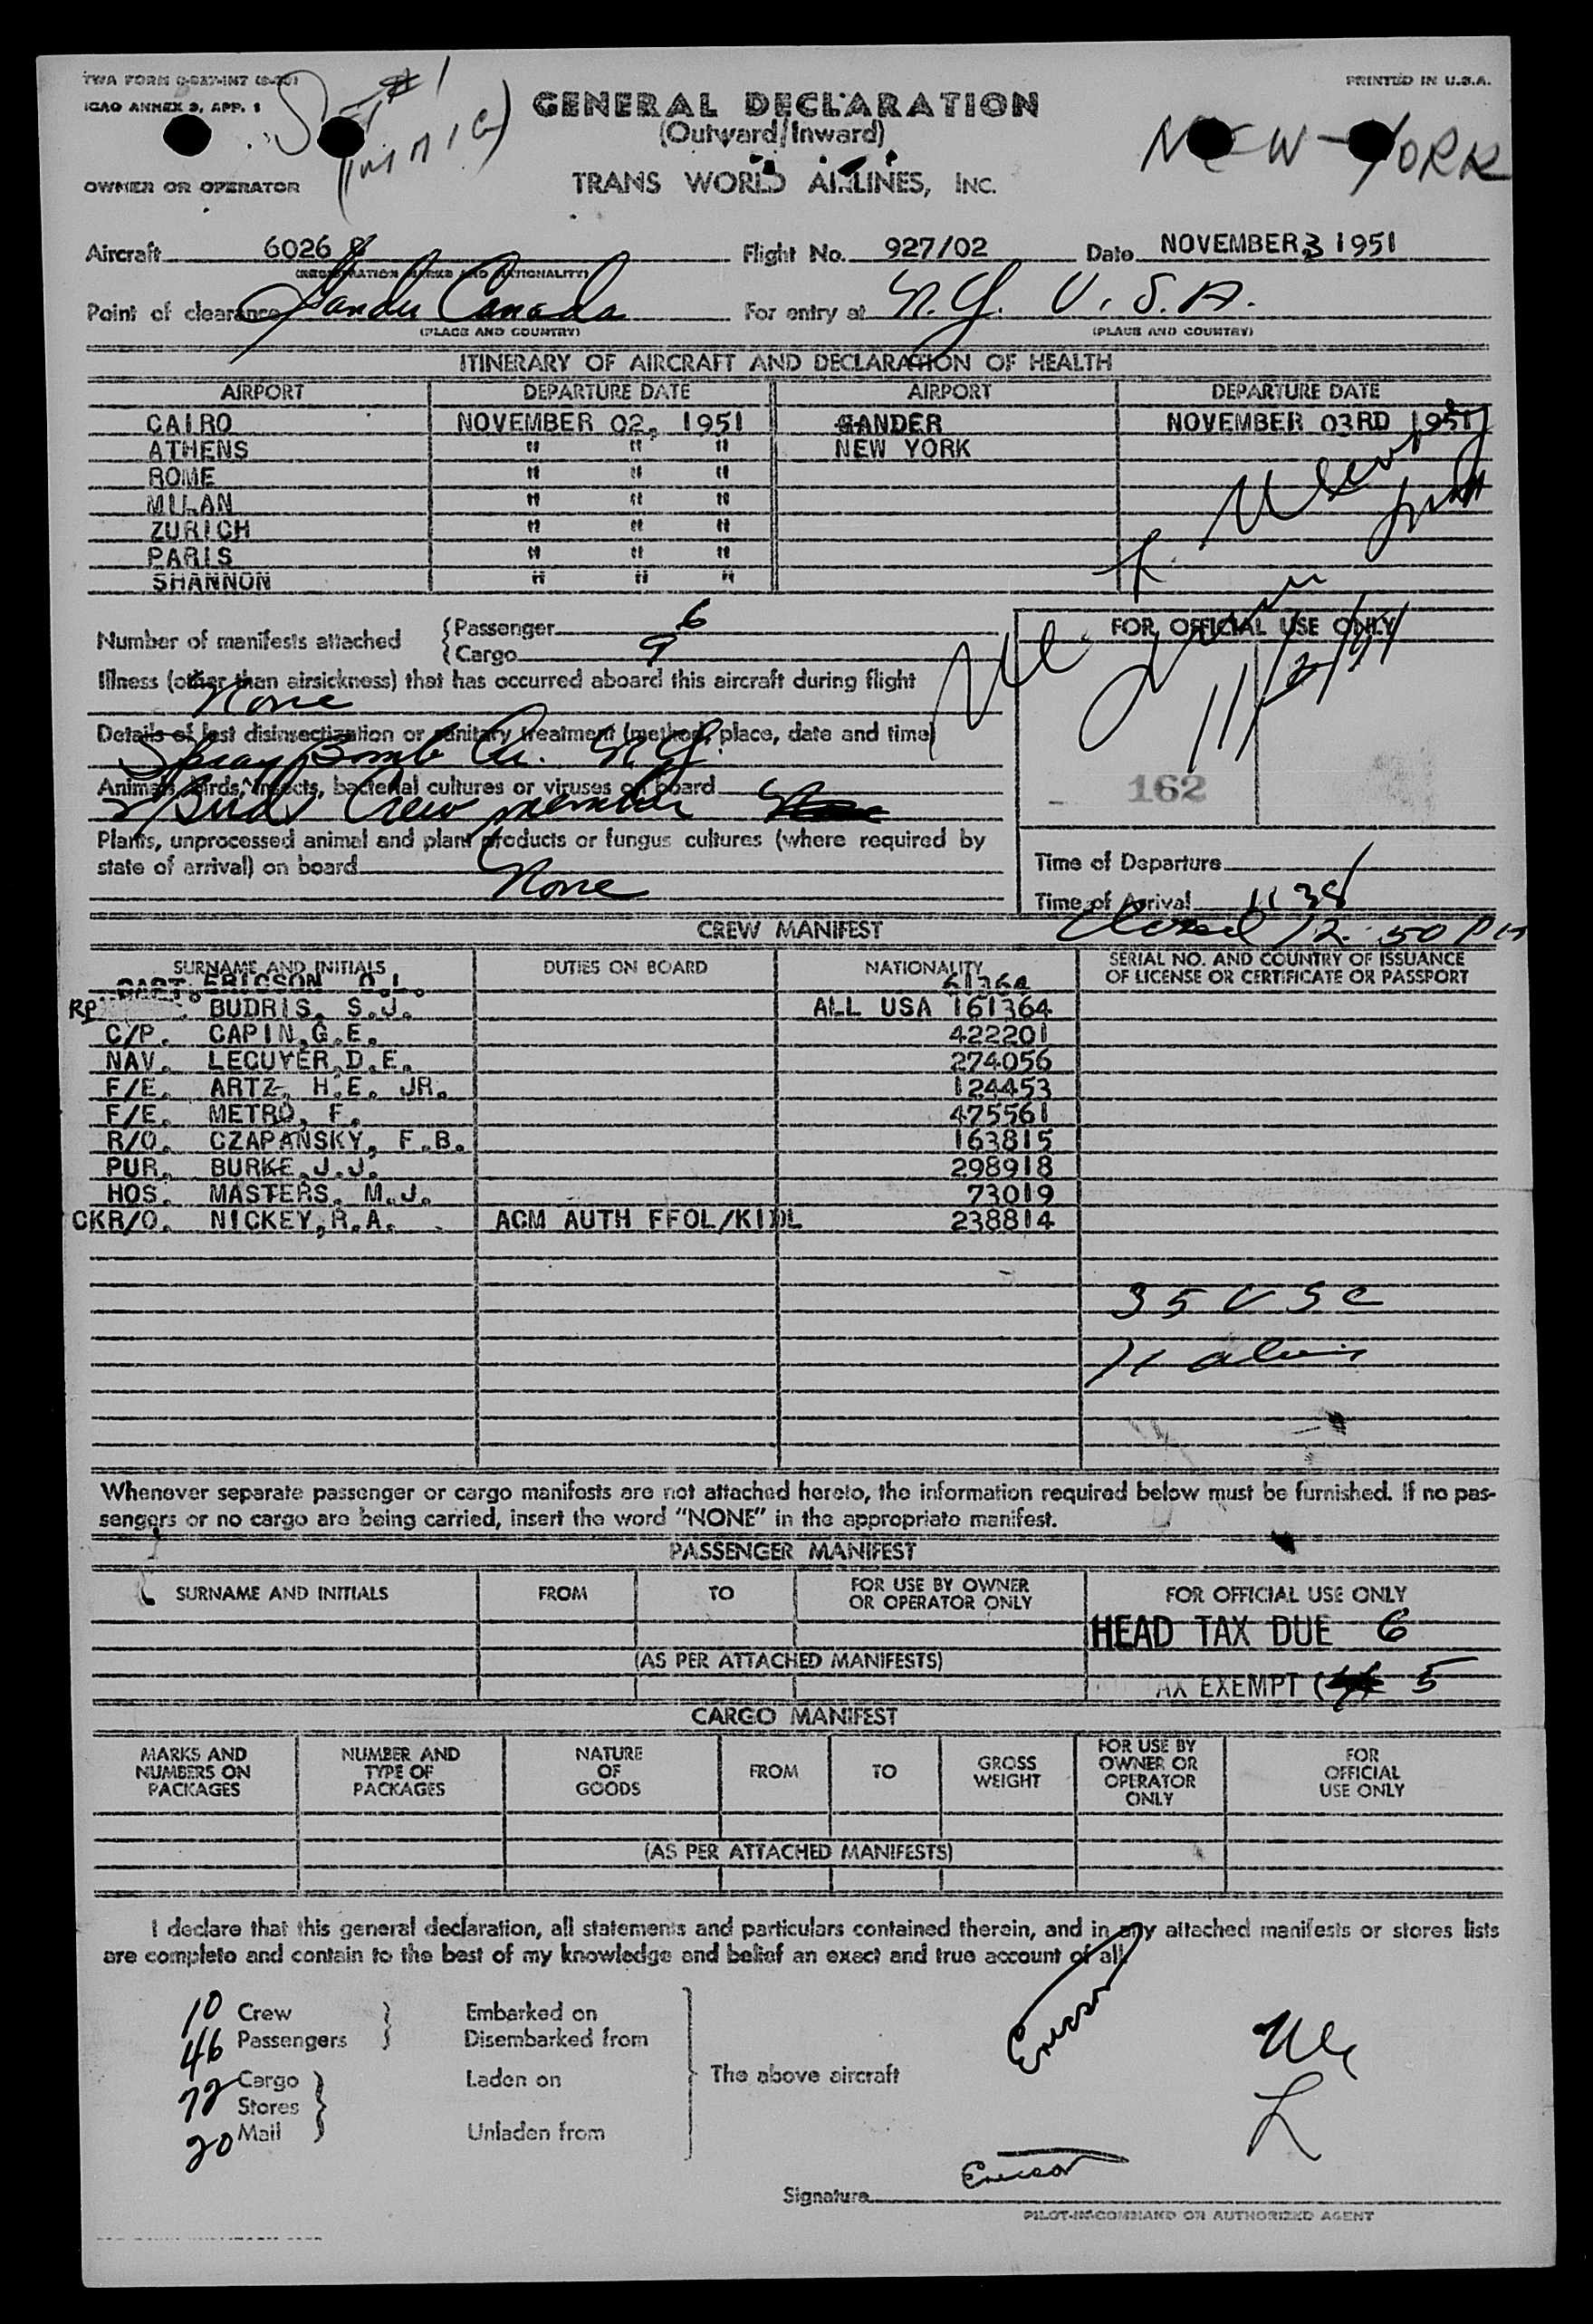 TWA FORM
ICAO ANNEX 9, APP. 1
PRINTED IN U.S.A.
GENERAL DECLARATION
(Outward/Inward)
NEW-YORK
OWNER OR OPERATOR
TRANS WORLD AIRLINES, INC.
Aircraft 6026 Flight No. 927/02 Date NOVEMBER 3 1951
(REGISTRATION MARKS AND NATIONALITY)
Point of clearance Gander Canada For entry at N.Y. U.S.A.
(PLACE AND COUNTRY) (PLACE AND COUNTRY)
ITINERARY OF AIRCRAFT AND DECLARATION OF HEALTH
AIRPORT DEPARTURE DATE AIRPORT DEPARTURE DATE
CAIRO NOVEMBER 02, 1951 GANDER NOVEMBER 03RD 1951
ATHENS " " " NEW YORK
ROME " " "
MILAN " " "
ZURICH " " "
PARIS " " "
SHANNON " " "
Number of manifests attached
Passenger 6
Cargo 9
FOR OFFICIAL USE ONLY
Illness (other than airsickness) that has occurred aboard this aircraft during flight
None
Details of last disinsectization or sanitary treatment (method, place, date and time)
Spray Bomb
Animals, birds, insects, bacterial cultures or viruses on board
2 Birds Crew member
162
Plants, unprocessed animal and plant products or fungus cultures (where required by
state of arrival) on board
None
Time of Departure
Time of Arrival 11 38
Closed 12:50 PM
CREW MANIFEST
SURNAME AND INITIALS DUTIES ON BOARD NATIONALITY SERIAL NO. AND COUNTRY OF ISSUANCE
OF LICENSE OR CERTIFICATE OR PASSPORT
CAPT. ERICSON O.L. 61364
RP BUDRIS, S.J. ALL USA 161364
C/P. CAPIN,G.E. 422201
NAV. LECUYER,D.E. 274056
F/E. ARTZ, H.E. JR. 124453
F/E. METRO, F. 475561
R/O. CZAPANSKY, F.B. 163815
PUR. BURKE,J.J. 298918
HOS. MASTERS, M.J. 73019
CKR/O. NICKEY,R.A. ACM AUTH FFOL/KIDL 238814
35 USC
11 aliens
Whenever separate passenger or cargo manifests are not attached hereto, the information required below must be furnished. If no pas-
sengers or no cargo are being carried, insert the word "NONE" in the appropriate manifest.
PASSENGER MANIFEST
SURNAME AND INITIALS FROM TO FOR USE BY OWNER
OR OPERATOR ONLY FOR OFFICIAL USE ONLY
HEAD TAX DUE 6
(AS PER ATTACHED MANIFESTS)
TAX EXEMPT 5
CARGO MANIFEST
MARKS AND
NUMBERS ON
PACKAGES
NUMBER AND
TYPE OF
PACKAGES
NATURE
OF
GOODS
FROM
TO
GROSS
WEIGHT
FOR USE BY
OWNER OR
OPERATOR
ONLY
FOR
OFFICIAL
USE ONLY
(AS PER ATTACHED MANIFESTS)
I declare that this general declaration, all statements and particulars contained therein, and in any attached manifests or stores lists
are complete and contain to the best of my knowledge and belief an exact and true account of all
10 Crew Embarked on
46 Passengers Disembarked from
72 Cargo Laden on The above aircraft
Stores
20 Mail Unladen from
Ericson
Ericson
Signature
PILOT-IN-COMMAND OR AUTHORIZED AGENT